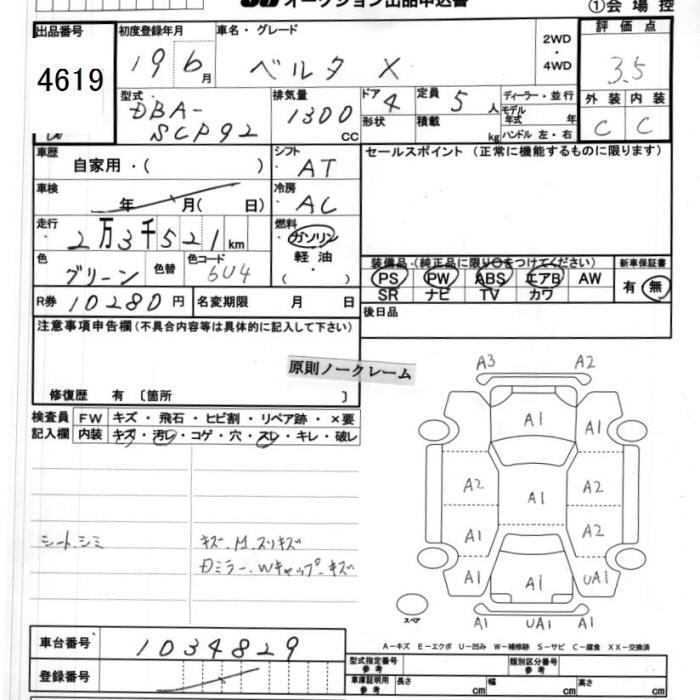 オークション出品申込書
①会場控
出品番号
4619
初度登録年月
19 6月
車名・グレード
ベルタ X
2WD
・
4WD
評価点
3.5
外装 内装
C C
型式
DBA-
SCP92
排気量
1300
CC
ドア
4
定員
5人
形状
積載
kg
ディーラー・並行
モデル
年式 年
ハンドル 左・右
車歴
自家用・( )
シフト
AT
セールスポイント (正常に機能するものに限ります)
車検
年 月( 日)
冷房
AC
走行
2万3千521km
燃料
ガソリン
軽油
・
( )
色
グリーン
色替
色コード
6U4
装備品・(純正品に限り○をつけてください)
PS PW ABS エアB AW
SR ナビ TV カワ
新車保証書
有・無
R券 10280円
名変期限 月 日
後日品
注意事項申告欄(不具合内容等は具体的に記入して下さい)
原則ノークレーム
修復歴 有 〔箇所 〕
検査員
記入欄
FW キズ・飛石・ヒビ割・リペア跡・×要
内装 キズ・汚レ・コゲ・穴・スレ・キレ・破レ
シート.シミ
キズ.M.スリキズ
Dミラー.Wキャップ-キズ
A3 A2
A1
A1 A1
A2 A2
A1
A1 A2
A1 UA1
A1
A1 UA1 A1
スペア
A-キズ E-エクボ U-凹み W-補修跡 S-サビ C-腐食 XX-交換済
車台番号
1034829
登録番号
型式指定番号
参考
類別区分番号
参考
車庫証明用
参考
長さ cm
幅 cm
高さ cm